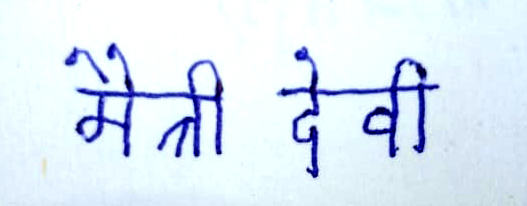 मैत्री देवी